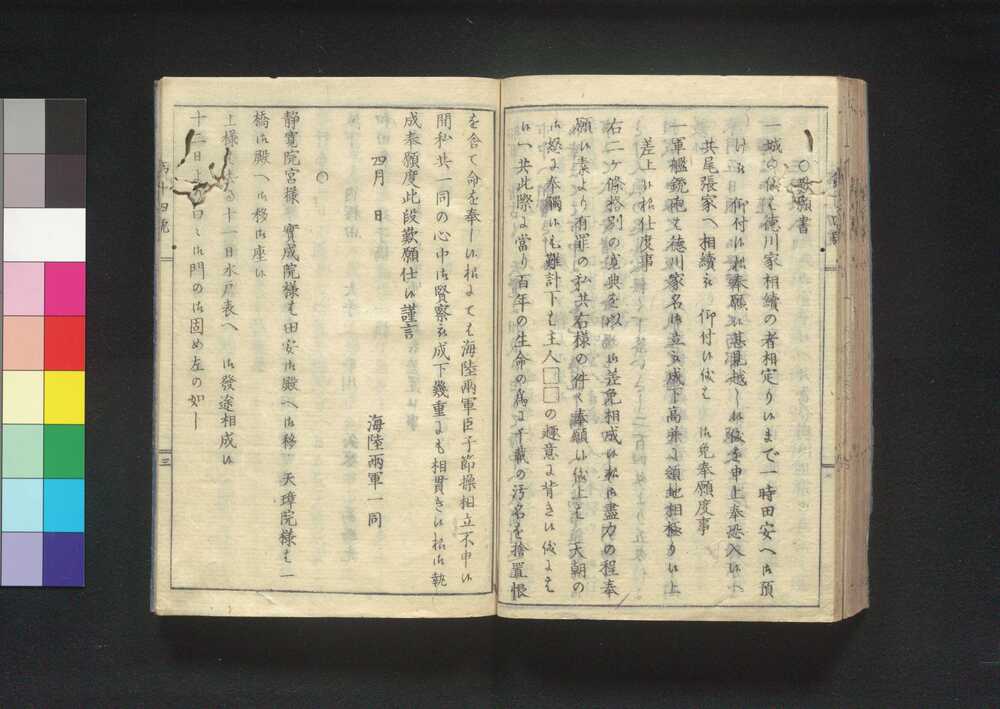 ○歎願書
一城の儀は徳川家相續の者相定りいまで一時田安へ御預
け被仰付い様奉願い甚見越しい儀を申上奉恐入いへ
共尾張家へ相續被仰付い儀は御免奉願度事
一軍艦銃砲は徳川家名御立被成下高并に領地相極りい上
差上い様仕度事
右二ヶ條格別の寛典を以御差免相成い様御盡力の程奉
願い素より有罪の私共右様の件々奉願い儀上は天朝の
御怒に奉觸いも難計下も主人□□の趣意に背きい儀には
い共此際に當り百年の生命の爲に千載の汚名を捨置恨
を含て命を奉しい様にても海陸兩軍臣子節操相立不申い
間私共一同の心中御賢察被成下幾重にも相貫きい様御執
成奉願度此段歎願仕い謹言
四月 日
海陸兩軍一同
○
静寛院宮様 實成院様は田安御殿へ御移 天璋院様は一
橋御殿へ御移御座い
上様 十一日水戸表へ 御發途相成い
十二日 御門の御固め左の如し
三